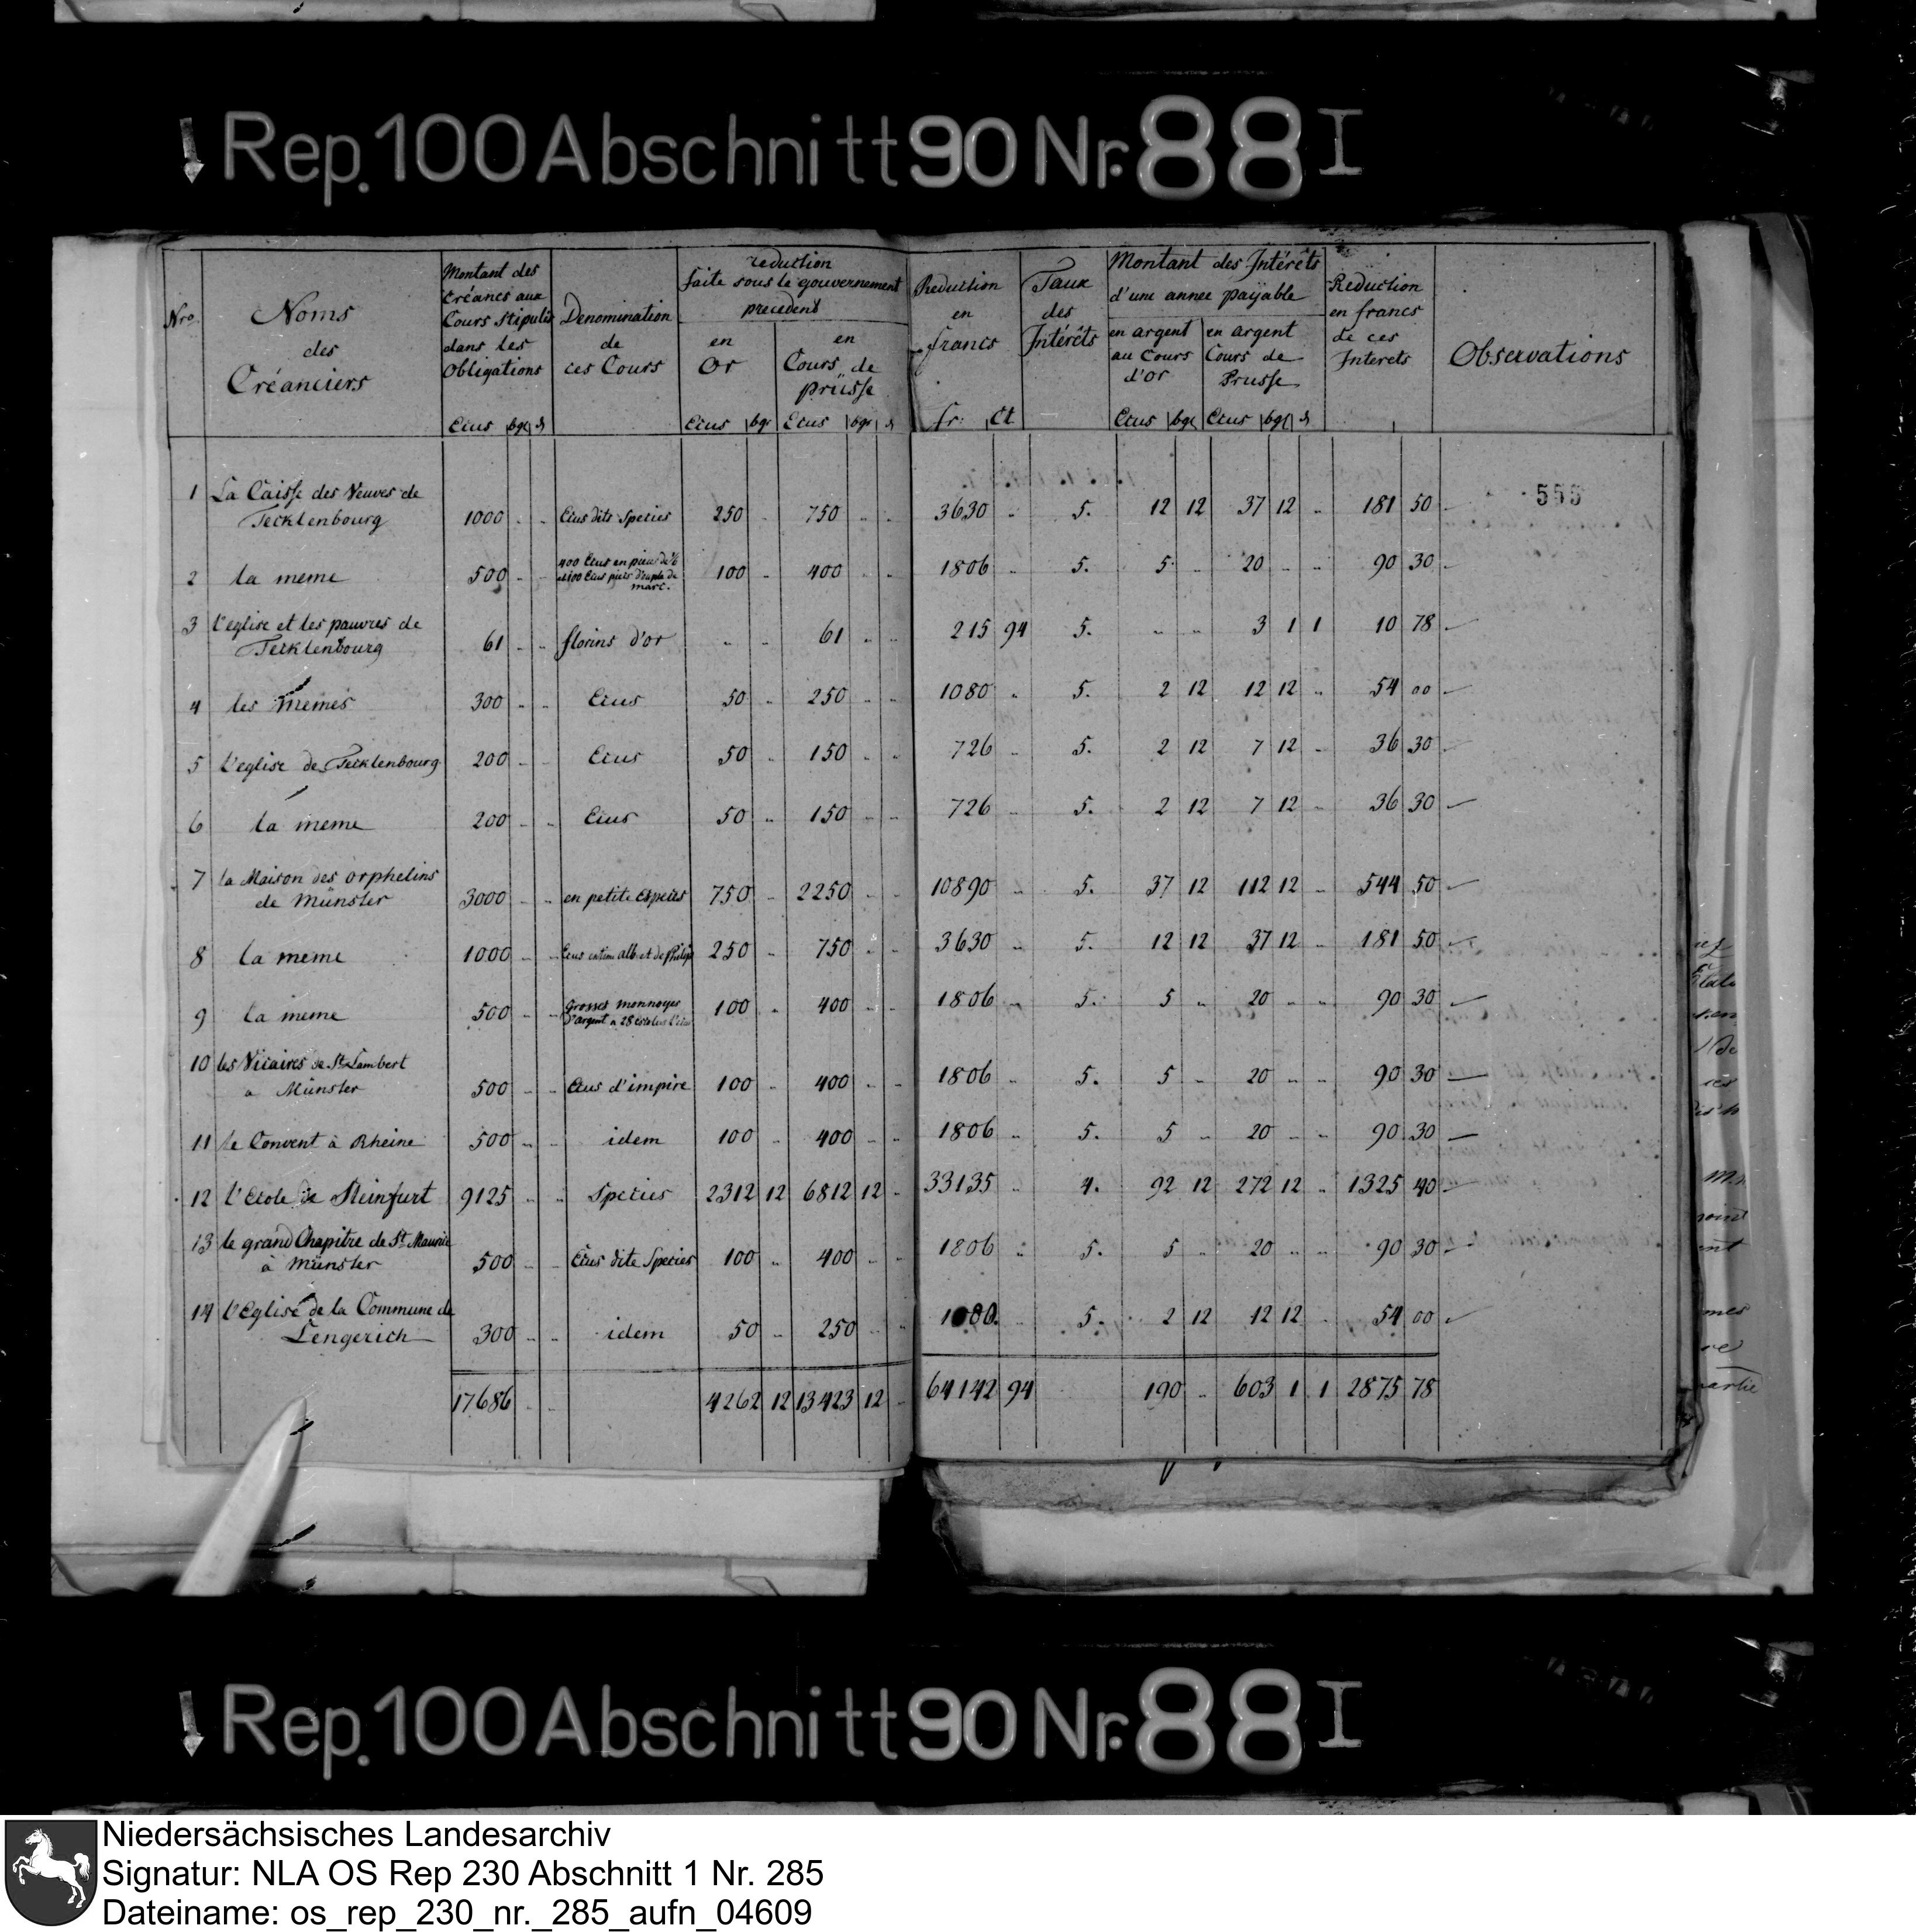 Rep. 100 Abschnitt 90 Nr. 88 I
Nro
Noms
des
Créanciers
Montant des
Créances aux
Cours Stipulés
dans les
Obligations
Ecus bgr d
Denomination
de
ces Cours
reduction
faite sous le gouvernement
precedent
en
Or
Ecus bgr
en
Cours de
prüsse
Ecus bgr d
Reduction
en
francs
fr: Ct
Taux
des
Intérêts
Montant des Intérêts
d'une annee payable
en argent
au Cours
d'or
Ecus bgr
en argent
Cours de
Prusse
Ecus bgr d
Reduction
en francs
de ces
Interets
Observations
555
1 La Caisse des Veuves de
Tecklenbourg 1000 .. .. Ecus dits Species 250 .. 750 .. .. 3630 .. 5. 12 12 37 12 .. 181 50 —
2 la meme 500 .. .. 400 Ecus en pieces de 1/6
et 100 Ecus pieces d'ouple de
marc. 100 .. 400 .. .. 1806 .. 5. 5 .. 20 .. .. 90 30 —
3 l'eglise et les pauvres de
Tecklenbourg 61 .. .. florins d'or .. .. 61 .. .. 215 94 5. .. .. 3 1 1 10 78 —
4 les memes 300 .. .. Ecus 50 .. 250 .. .. 1080 .. 5. 2 12 12 12 .. 54 00 —
5 l'eglise de Tecklenbourg 200 .. .. Ecus 50 .. 150 .. .. 726 .. 5. 2 12 7 12 .. 36 30 —
6 la meme 200 .. .. Ecus 50 .. 150 .. .. 726 .. 5. 2 12 7 12 .. 36 30 —
7 la Maison des orphelins
de Münster 3000 .. .. en petite especes 750 .. 2250 .. .. 10890 .. 5. 37 12 112 12 .. 544 50 —
8 la meme 1000 .. .. Ecus alb. et de Philip 250 .. 750 .. .. 3630 .. 5. 12 12 37 12 .. 181 50 —
9 la meme 500 .. .. Grosses monnoyes
d'argent a 28 l'ecu 100 .. 400 .. .. 1806 .. 5. 5 .. 20 .. .. 90 30 —
10 les Vicaires de St. Lambert
a Münster 500 .. .. Ecus d'impire 100 .. 400 .. .. 1806 .. 5. 5 .. 20 .. .. 90 30 —
11 le Convent à Rheine 500 .. .. idem 100 .. 400 .. .. 1806 .. 5. 5 .. 20 .. .. 90 30 —
12 l'Ecole de Steinfurt 9125 .. .. Species 2312 12 6812 12 .. 33135 .. 4. 92 12 272 12 .. 1325 40 —
13 le grand Chapitre de St. Maurice
à Münster 500 .. .. Ecus dite Species 100 .. 400 .. .. 1806 .. 5. 5 .. 20 .. .. 90 30 —
14 l'Eglise de la Commune de
Lengerich 300 .. .. idem 50 .. 250 .. .. 1080. .. 5. 2 12 12 12 .. 54 00 —
17686 .. .. 4262 12 13423 12 .. 64142 94 190 .. 603 1 1 2875 78
Rep. 100 Abschnitt 90 Nr. 88 I
Niedersächsisches Landesarchiv
Signatur: NLA OS Rep 230 Abschnitt 1 Nr. 285
Dateiname: os_rep_230_nr._285_aufn_04609